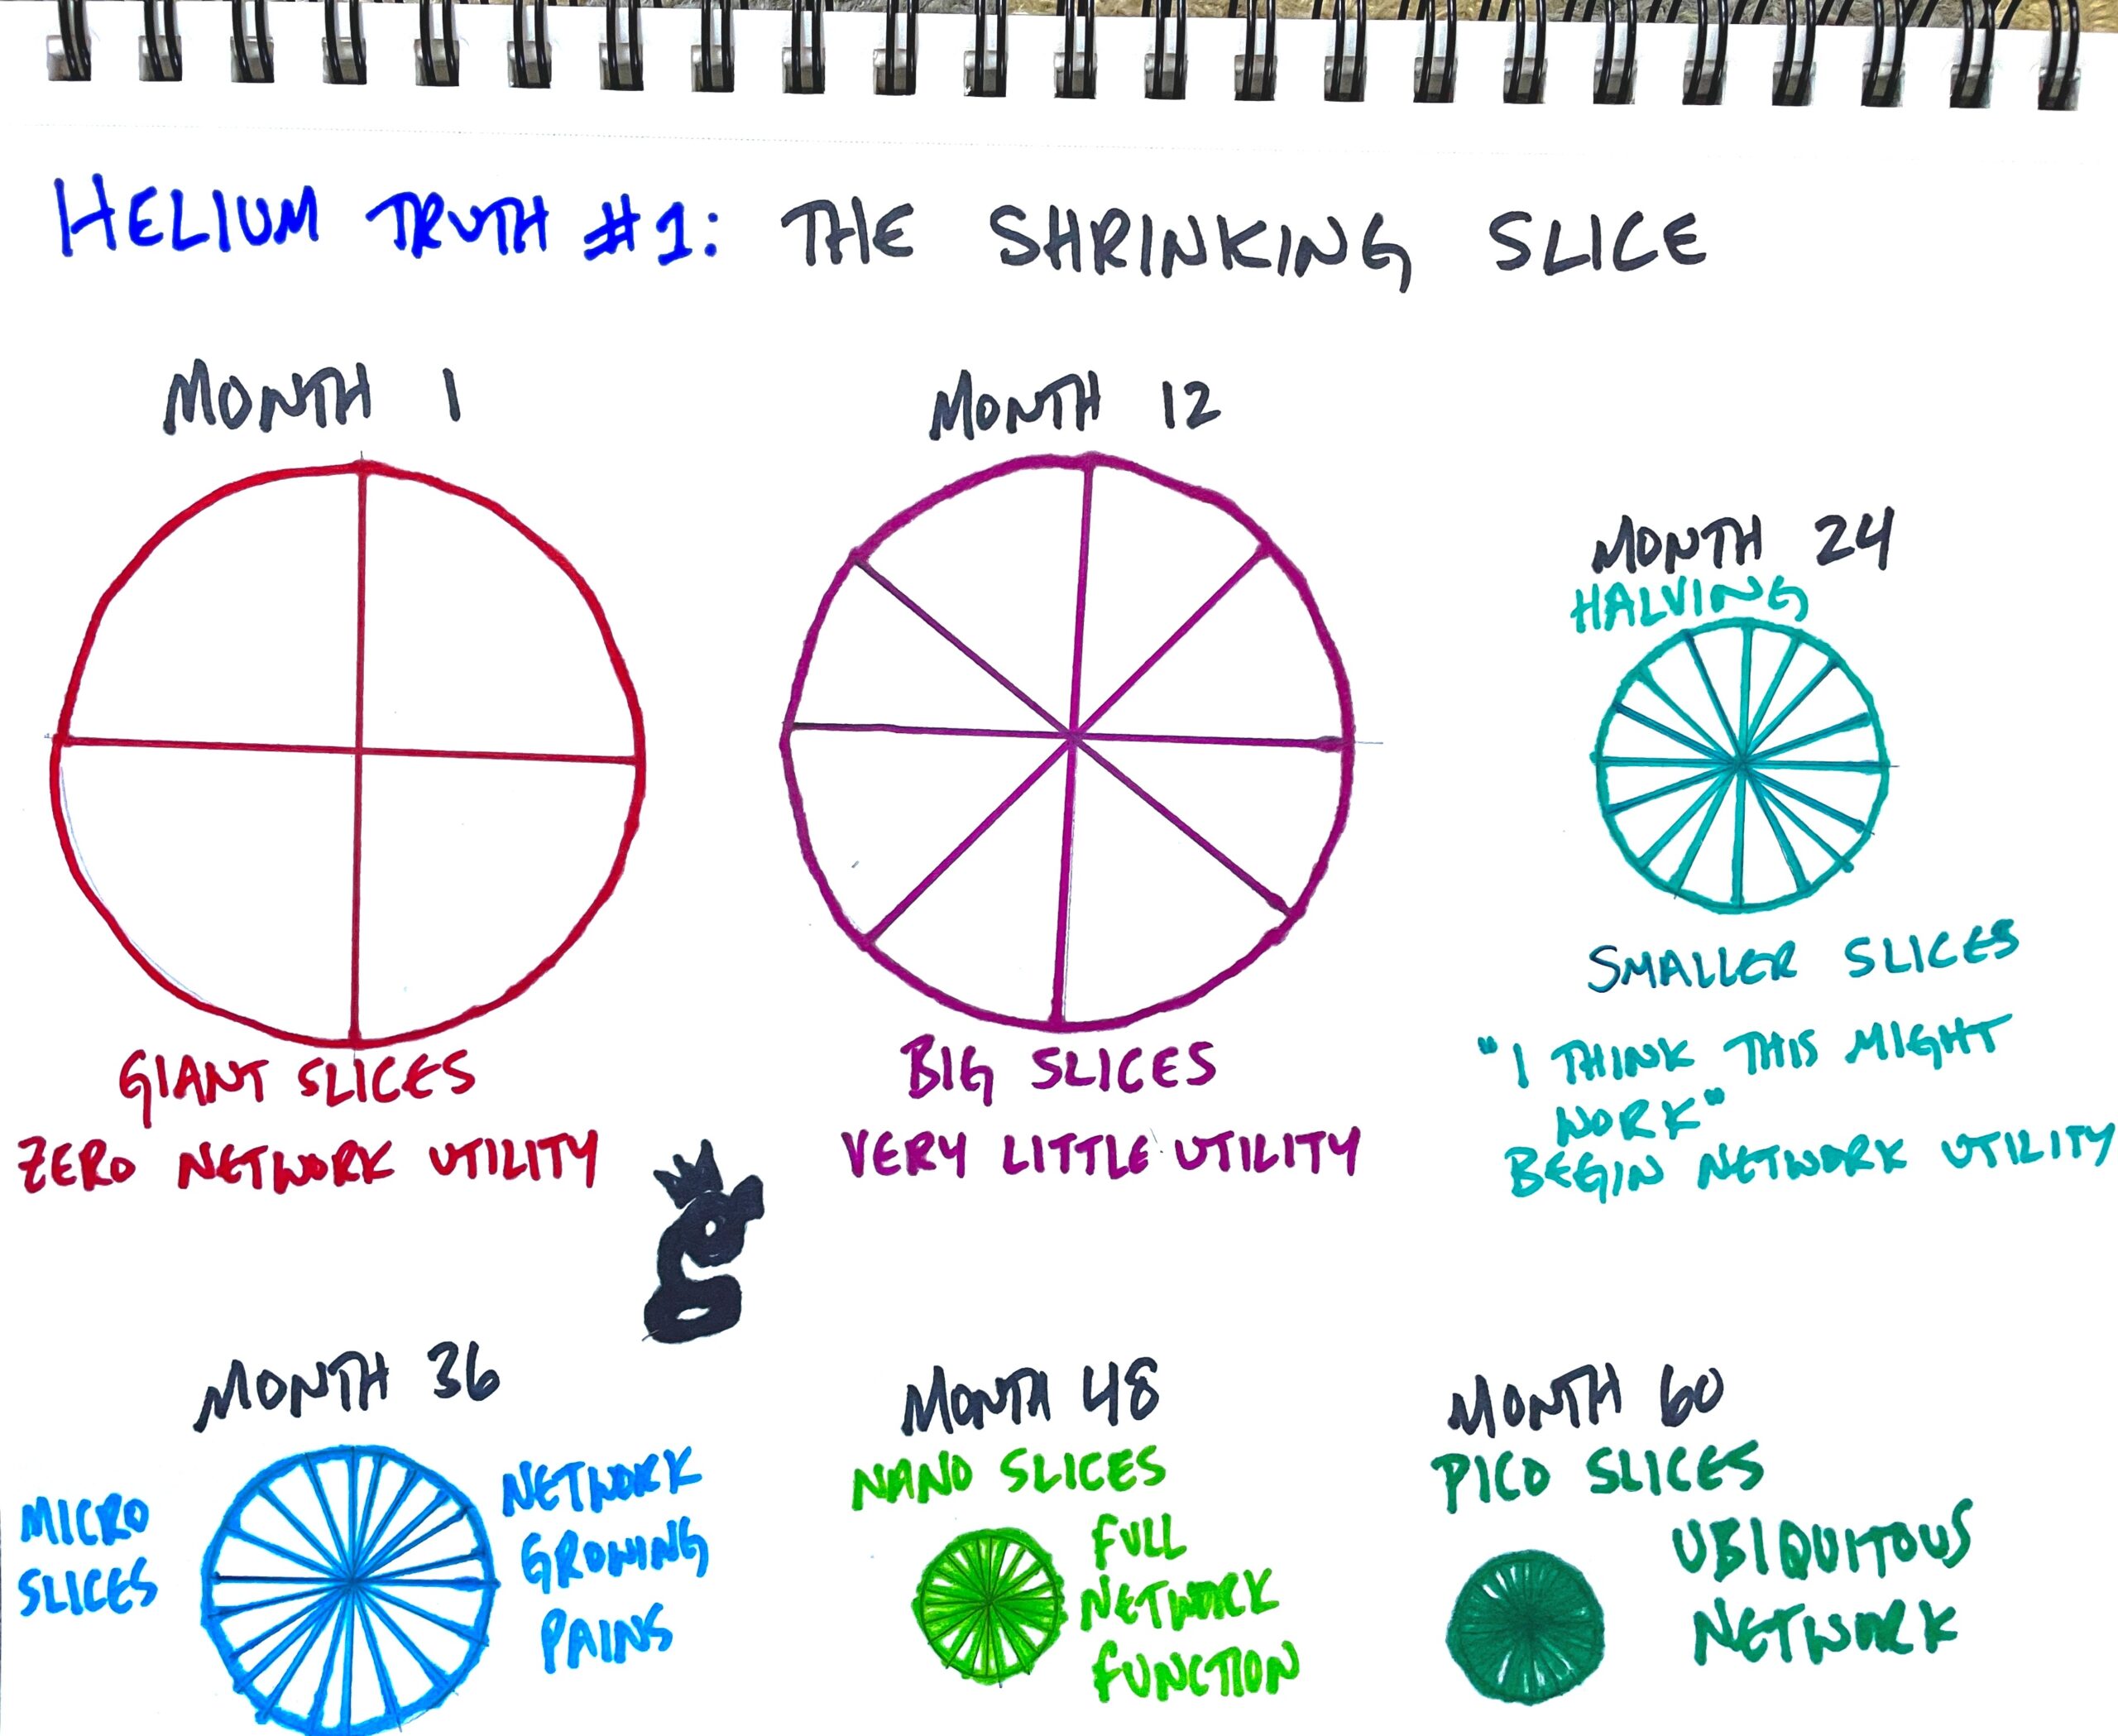 HELIUM TRUTH #1: THE SHRINKING SLICE
MONTH 1
GIANT SLICES
ZERO NETWORK UTILITY
MONTH 12
BIG SLICES
VERY LITTLE UTILITY
MONTH 24
HALVING
SMALLER SLICES
"I THINK THIS MIGHT
WORK"
BEGIN NETWORK UTILITY
g
MONTH 36
MICRO
SLICES
NETWORK
GROWING
PAINS
MONTH 48
NANO SLICES
FULL
NETWORK
FUNCTION
MONTH 60
PICO SLICES
UBIQUITOUS
NETWORK